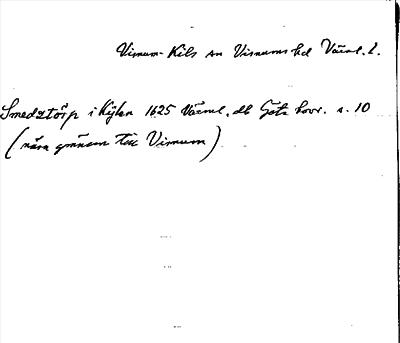 Visnum-Kils sn Visnums hd Värml. l.
Smedstorp i Kylen 1625 Värml. db Göta hovr. s. 10
(nära gränsen till Visnum)